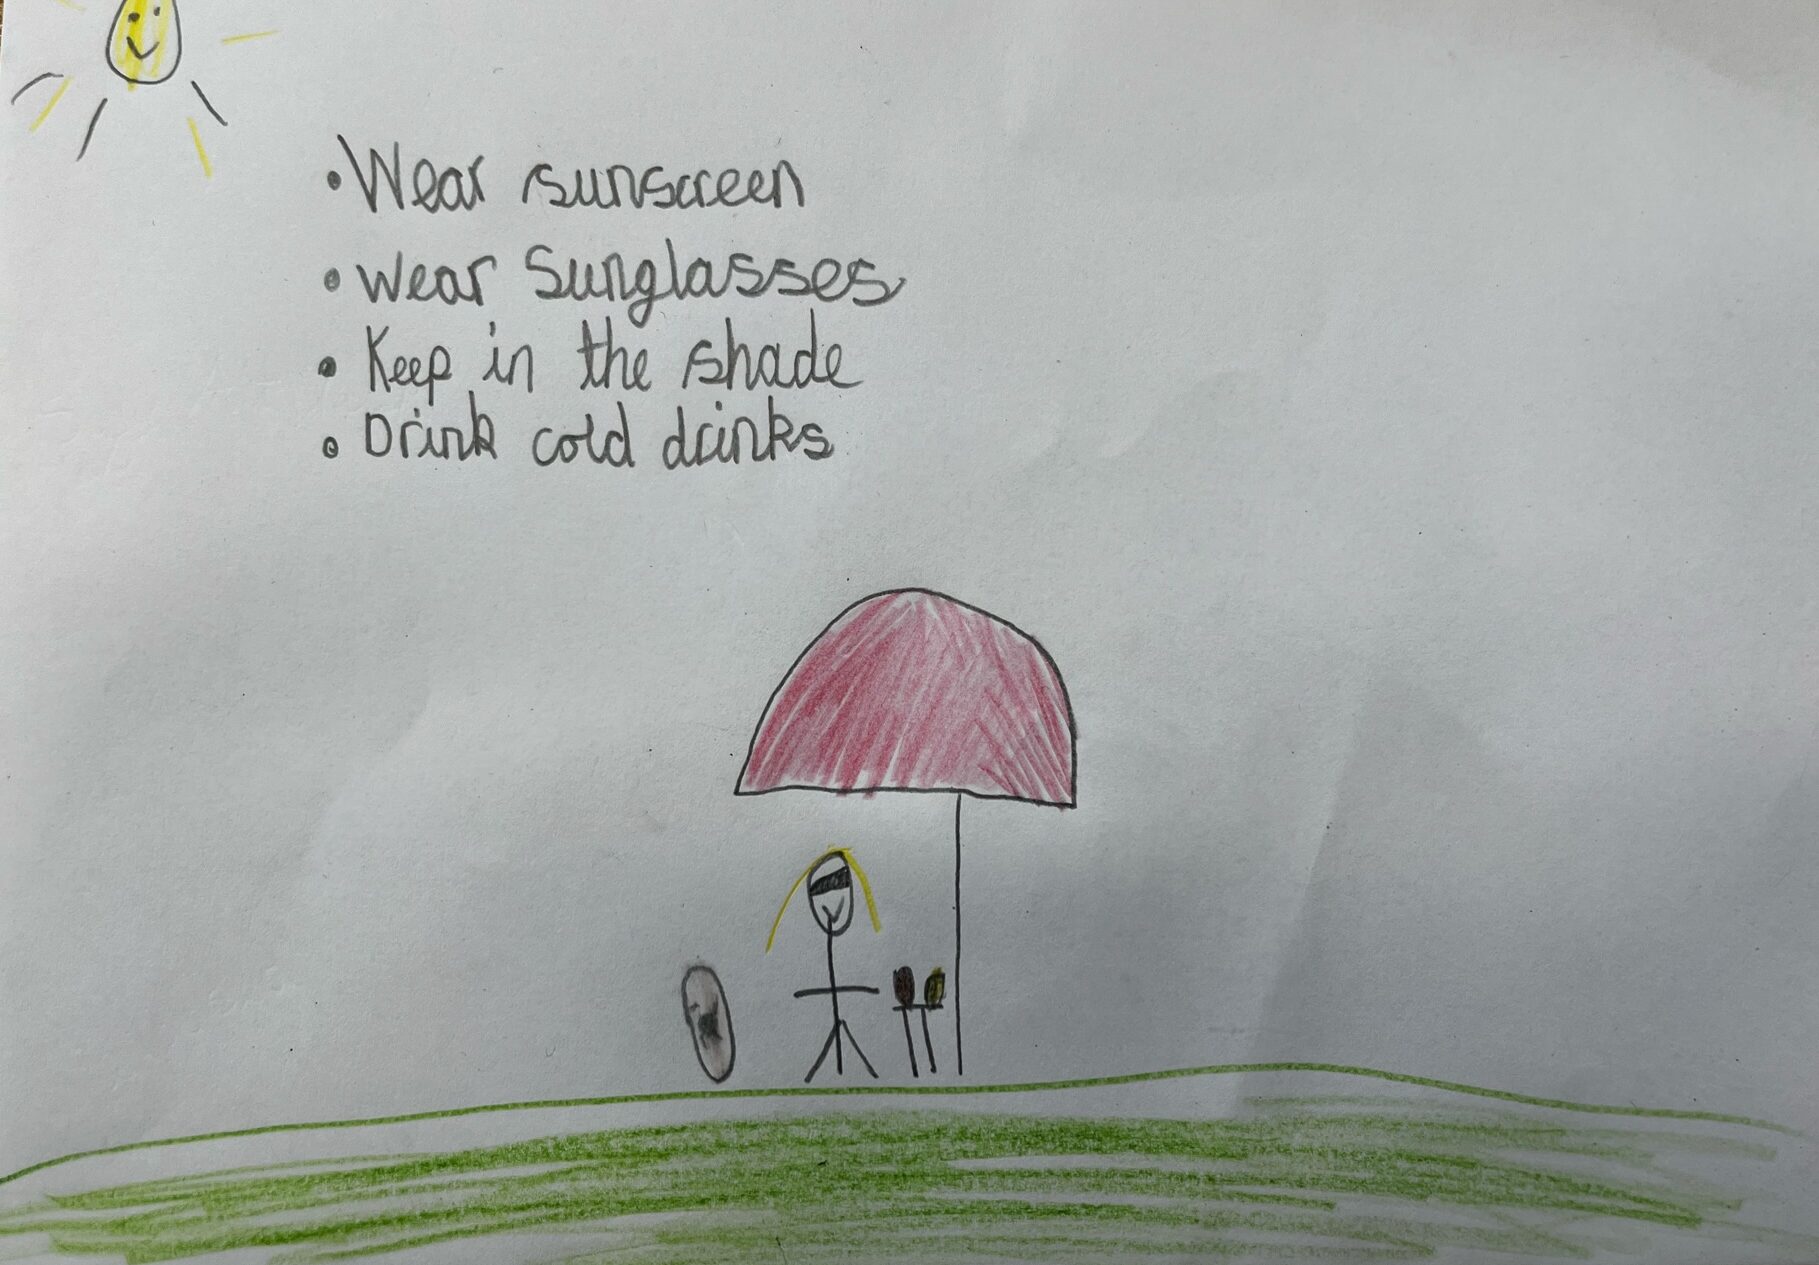 • Wear sunscreen
• wear Sunglasses
• Keep in the shade
• Drink cold drinks